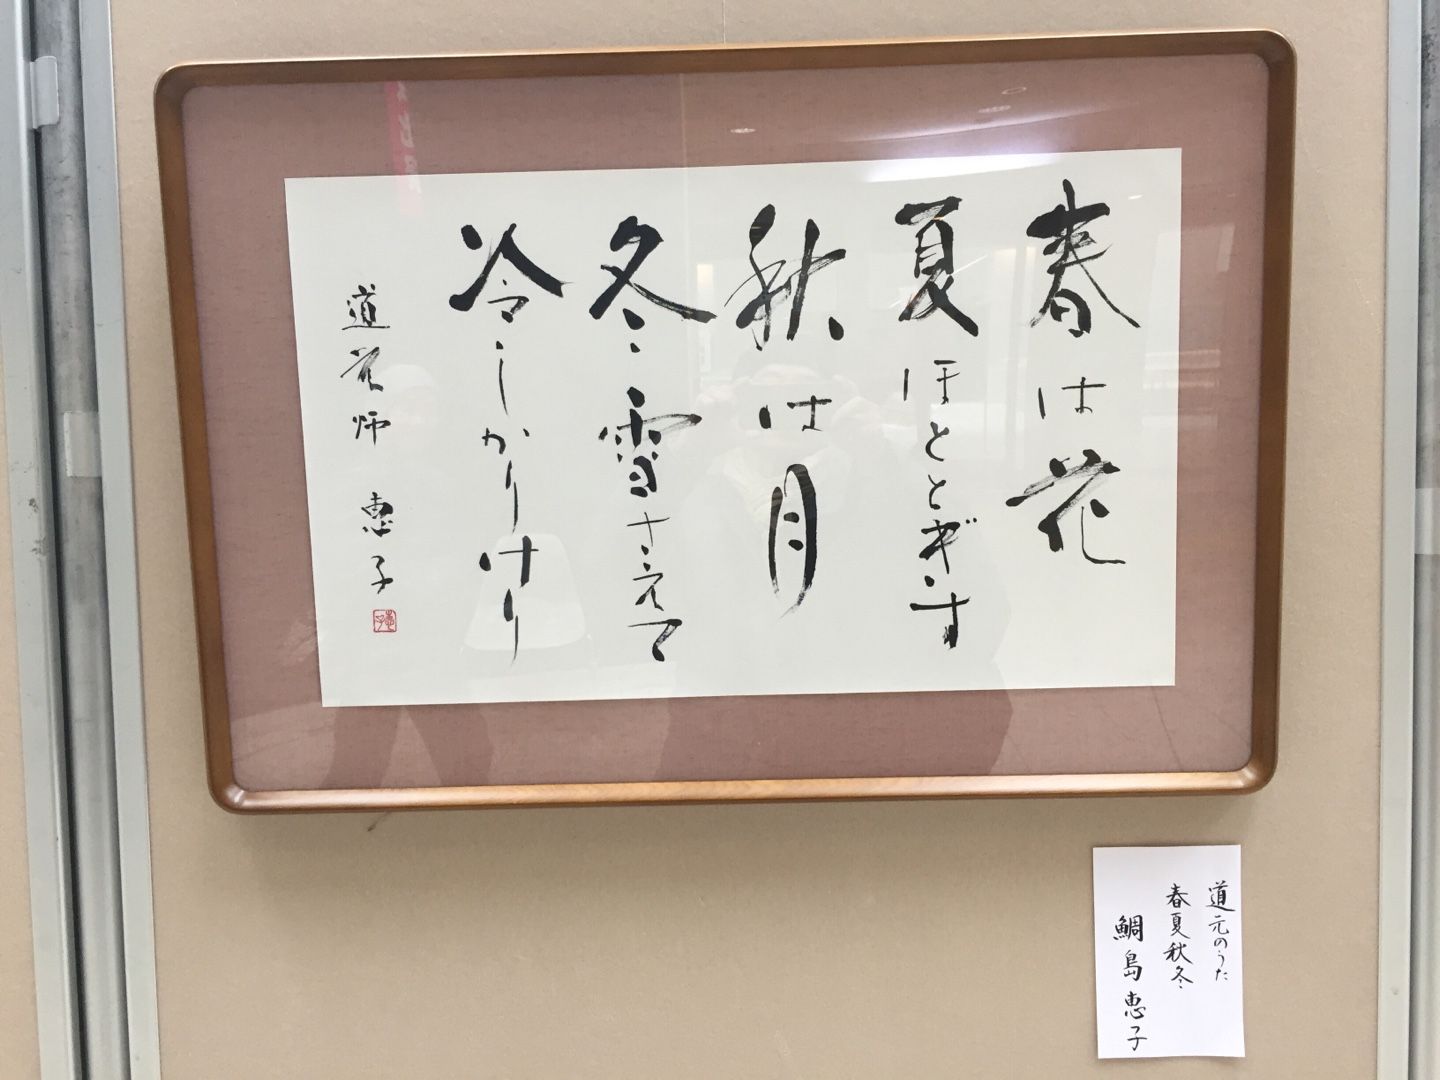 春は花
夏ほととぎす
秋は月
冬雪さえて
冷しかりけり
道元師 恵子
道元のうた
春夏秋冬
鯛島恵子